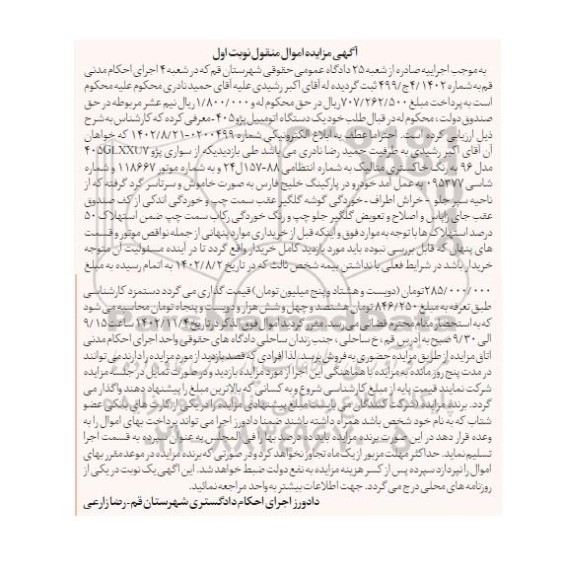 آگهی مزایده اموال منقول نوبت اول
به موجب اجراییه صادره از شعبه ۲۵ دادگاه عمومی حقوقی شهرستان قم که در شعبه ۴ اجرای احکام مدنی
قم به شماره ۴/۱۴۰۲ج/۴۹۹ ثبت گردیده له آقای اکبر رشیدی علیه آقای حمید نادری محکوم علیه محکوم
است به پرداخت مبلغ ۷۰۷/۲۶۲/۵۰۰ ریال در حق محکوم له و ۱/۸۰۰/۰۰۰ ریال نیم عشر مربوطه در حق
صندوق دولت ، محکوم له در قبال طلب خود یک دستگاه اتومبیل پژو ۴۰۵ـ معرفی کرده که کارشناس به شرح
ذیل ارزیابی کرده است. احتراما عطف به ابلاغ الکترونیکی شماره ۰۲۰۰۴۹۹-۱۴۰۲/۸/۲۱ که خواهان
آن آقای اکبر رشیدی به طرفیت حمید رضا نادری می باشد طی بازدیدیکه از سواری پژو ۴۰۵GLXXU۷
مدل ۹۶ به رنگ خاکستری متالیک به شماره انتظامی ۸۸-۱۵۷ل۲۴ و به شماره موتور ۱۱۸۶۶۷ و شماره
شاسی ۰۹۵۳۷۷ به عمل آمد خودرو در پارکینگ خلیج فارس به صورت خاموش و سرتاسر گرد گرفته که از
ناحیه سپر جلو - خراش اطراف - خوردگی گوشه گلگیر عقب سمت چپ و خوردگی اندکی از کف صندوق
عقب جای زاپاس و اصلاح و تعویض گلگیر جلو چپ و رنگ خوردگی رکاب سمت چپ ضمن استهلاک ۵۰
درصد استهلاک ها با توجه به موارد فوق و اینکه قبل از خریداری موارد پنهانی از جمله نواقص موتور و قسمت
های پنهان که قابل بررسی نبوده باید مورد بازدید کامل خریدار واقع گردد تا در آینده مسئولیت آن متوجه
خریدار باشد در شرایط فعلی با نداشتن بیمه شخص ثالث که در تاریخ ۱۴۰۲/۸/۲ به اتمام رسیده به مبلغ
۲۸۵/۰۰۰/۰۰۰تومان (دویست و هشتاد و پنج میلیون تومان) قیمت گذاری می گردد دستمزد کارشناسی
طبق تعرفه به مبلغ ۸۴۶/۲۵۰ تومان هشتصد و چهل و شش هزار و دویست و پنجاه تومان محاسبه می شود
که به استحضار مقام محترم قضائی می رسد. مقرر گردید اموال فوق الذکر در تاریخ ۱۴۰۲/۱۱/۴ ساعت ۹/۱۵
الی ۹/۳۰ صبح به آدرس قم ، خ ساحلی ، جنب زندان ساحلی دادگاه های حقوقی واحد اجرای احکام مدنی
اتاق مزایده از طریق مزایده حضوری به فروش برسد. لذا افرادی که قصد بازدید از مورد مزایده را دارند می توانند
در مدت پنج روز مانده به مزایده با هماهنگی این اجرا از مورد مزایده بازدید و در صورت تمایل در جلسه مزایده
شرکت نمایند قیمت پایه از مبلغ کارشناسی شروع و به کسانی که بالاترین مبلغ را پیشنهاد دهند واگذار می
گردد. برنده مزایده (شرکت کنندگان می بایست مبلغ پیشنهادی مزایده را در یکی از کارت های بانکی عضو
شتاب که به نام خود شخص باشد همراه داشته باشند ضمنا دادورز اجرا می تواند پرداخت بهای اموال را به
وعده قرار دهد در این صورت برنده مزایده باید ده درصد بها را فی المجلس به عنوان سپرده به قسمت اجرا
تسلیم نماید. حداکثر مهلت مزبور از یک ماه تجاوز نخواهد کرد و در صورتی که برنده مزایده در موعد مقرر بهای
اموال را نپردازد سپرده پس از کسر هزینه مزایده به نفع دولت ضبط خواهد شد. این آگهی یک نوبت در یکی از
روزنامه های محلی درج می گردد. جهت اطلاعات بیشتر به واحد مراجعه نمائید.
دادورز اجرای احکام دادگستری شهرستان قم - رضا زارعی